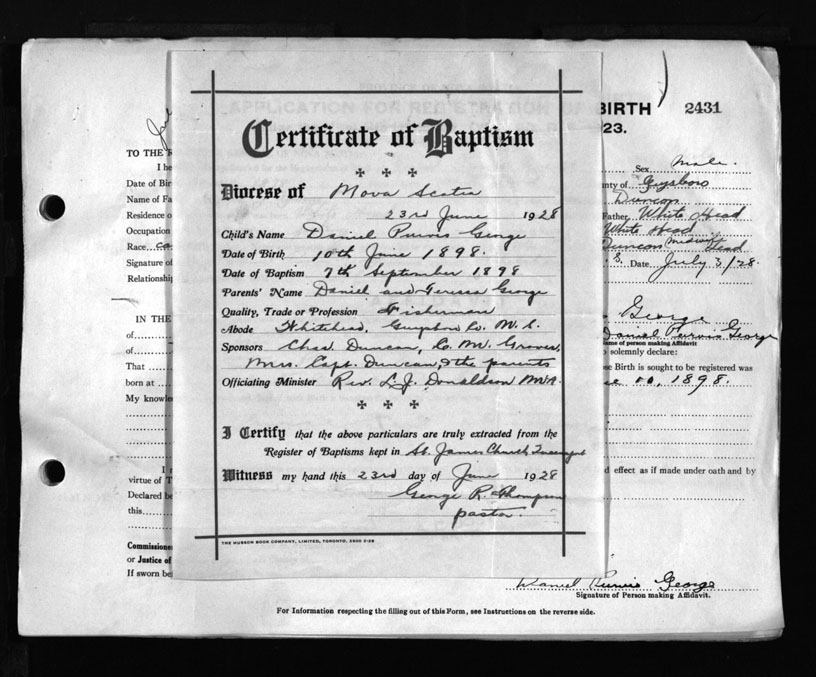 BIRTH 2431
23.
Certificate of Baptism
TO THE
Sex Male.
Diocese of Nova Scotia
Date of Bir
nty of Guysboro
23rd June 1928
Name of Fa
Duncan
Child's Name Daniel Purvis George
Residence o
Father White Head
Date of Birth 10th June 1898.
Occupation
White Head
Date of Baptism 7th September 1898
Race
Duncan midwife Dead
Parents' Name Daniel and Teresa George
Signature of
S. Date July 3/28.
Quality, Trade or Profession Fisherman
Relationship
Abode Whitehead, Guysboro Co. N. S.
IN THE
George
Sponsors Chas. Duncan, C. M. Groves,
of
Daniel Purvis George
Name of person making Affidavit
Mrs. Capt. Duncan, & the parents
of
solemnly declare:
That
se Birth is sought to be registered was
Officiating Minister Rev. L. J. Donaldson M.A.
born at
10, 1898.
My knowle
I Certify that the above particulars are truly extracted from the
Register of Baptisms kept in St. James Church,
virtue of T
d effect as if made under oath and by
Witness my hand this 23rd day of June 1928
Declared be
George R. Thompson
this
pastor.
THE HUNSON BOOK COMPANY, LIMITED, TORONTO, 2500 2-28
Commissione
or Justice of
If sworn be
Daniel Purvis George
Signature of Person making Affidavit.
For Information respecting the filling out of this Form, see Instructions on the reverse side.